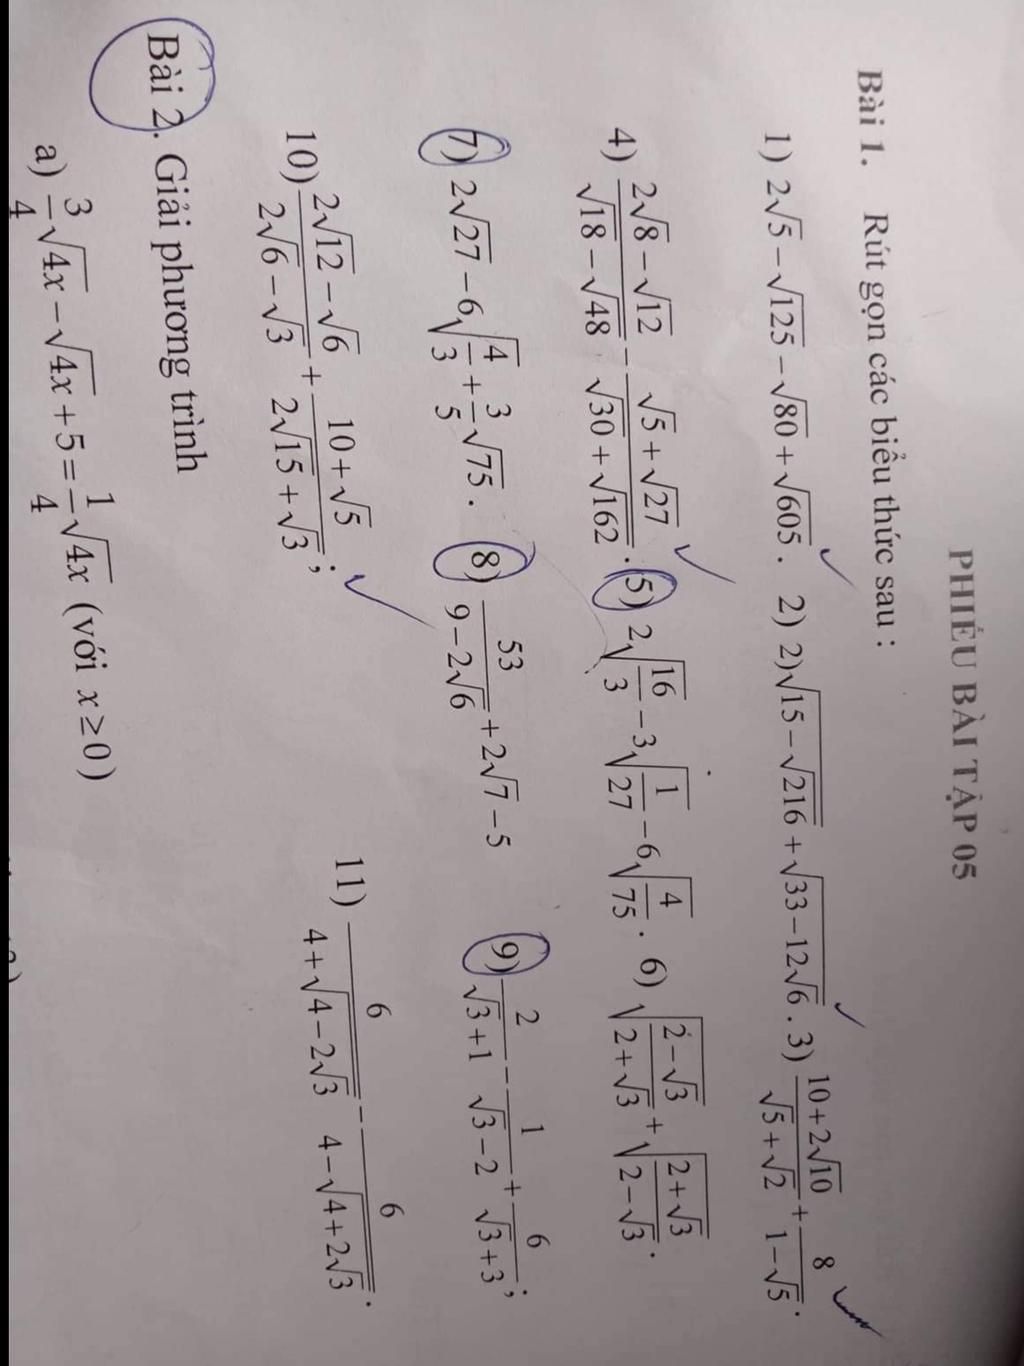 PHIẾU BÀI TẬP 05
Bài 1. Rút gọn các biểu thức sau :
1) 2√5 − √125 − √80 + √605 . 2) 2)√(15 − √216) + √(33 − 12√6) . 3) (10 + 2√10)/(√5 + √2) + 8/(1 − √5) .
4) (2√8 − √12)/(√18 − √48) − (√5 + √27)/(√30 + √162) . 5) 2√(16/3) − 3√(1/27) − 6√(4/75) . 6) √((2 − √3)/(2 + √3)) + √((2 + √3)/(2 − √3)) .
7) 2√27 − 6√(4/3) + 3/5 √75 . 8) 53/(9 − 2√6) + 2√7 − 5 9) 2/(√3 + 1) − 1/(√3 − 2) + 6/(√3 + 3) ;
10) (2√12 − √6)/(2√6 − √3) + (10 + √5)/(2√15 + √3) ; 11) 6/(4 + √(4 − 2√3)) − 6/(4 − √(4 + 2√3)) .
Bài 2. Giải phương trình
a) 3/4 √4x − √4x + 5 = 1/4 √4x (với x ≥ 0)